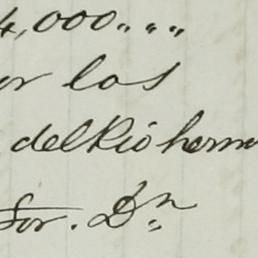 4,000....
or los
del Rio herm
Sor. Dn